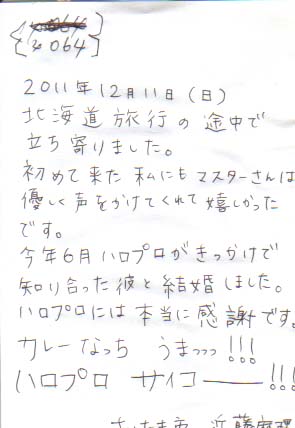 {4064}
2011年12月11日(日)
北海道旅行の途中で
立ち寄りました。
初めて来た私にもマスターさんは
優しく声をかけてくれて嬉しかった
です。
今年6月ハロプロがきっかけで
知り合った彼と結婚しました。
ハロプロには本当に感謝です。
カレーなっち うまっっっ!!!
ハロプロ サイコー――!!!
さいたま市 近藤